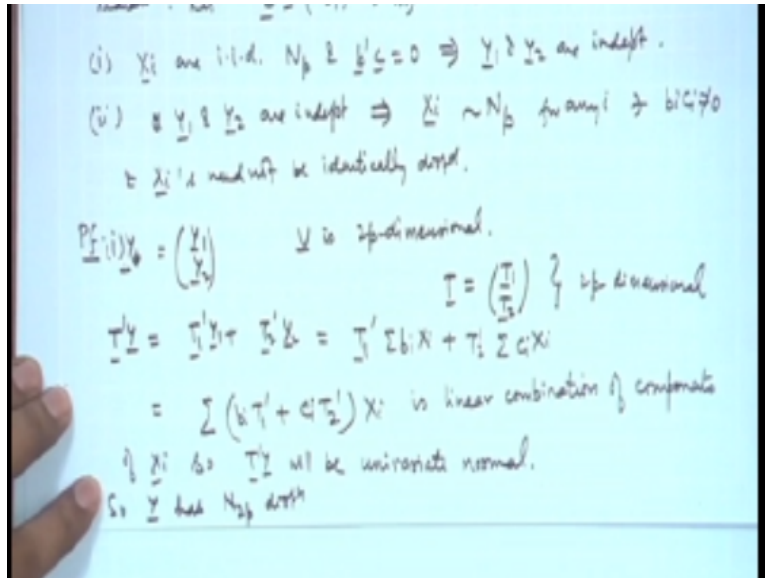 (i) Xi are i.i.d. Np & b'c = 0 ⇒ Y1 & Y2 are indept.
(ii) Y1 & Y2 are indept ⇒ Xi ~ Np for any i ∋ biCi≠0
& Xi's need not be identically distd.
Pf: (i) Y = (Y1 Y2) Y is 2p-dimensional.
T = (T1 T2) } 2p dimensional
T'Y = T1'Y1 + T2'Y2 = T1' Σ bi Xi + T2' Σ Ci Xi
= Σ (bi T1' + Ci T2') Xi is linear combination of components
of Xi so T'Y will be univariate normal.
So Y has N2p distn